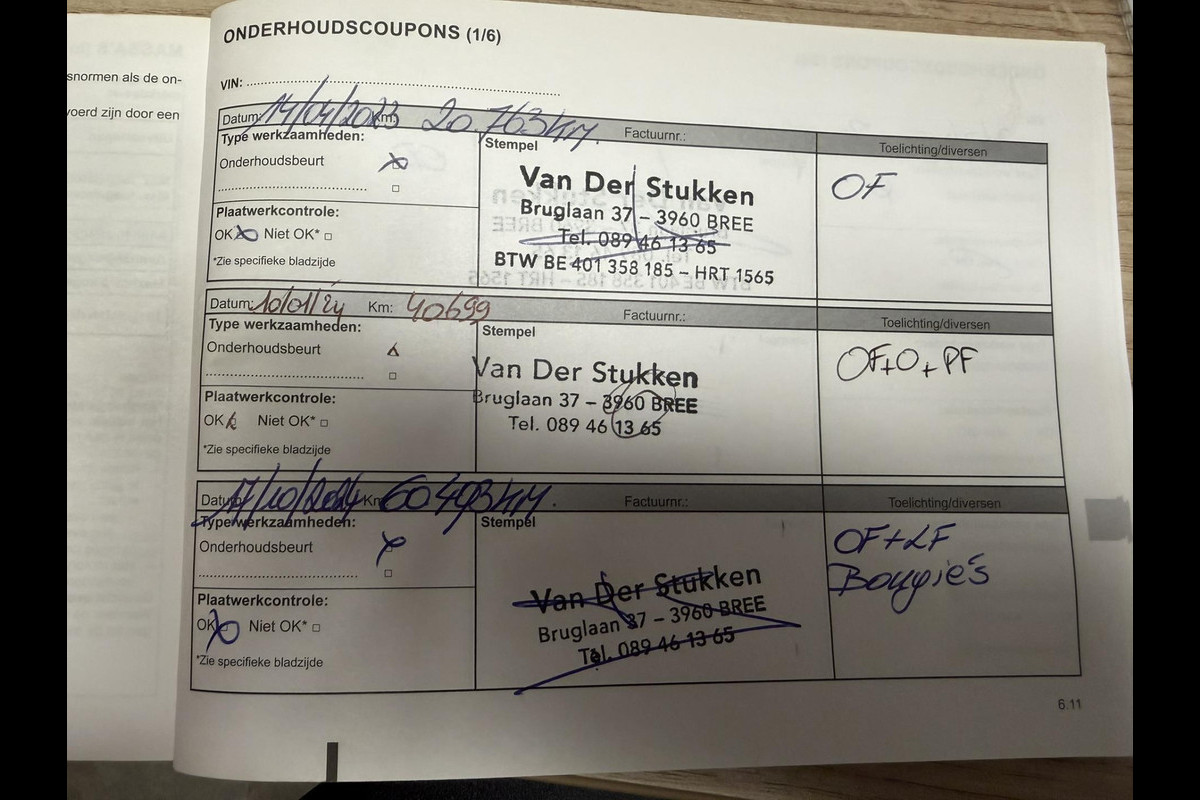 snormen als de on-
voerd zijn door een
ONDERHOUDSCOUPONS (1/6)
VIN:
Datum: 14/04/2023 Km: 20.763KM. Factuurnr.: Toelichting/diversen
Type werkzaamheden:
Onderhoudsbeurt
Plaatwerkcontrole:
OK Niet OK*
*Zie specifieke bladzijde
Stempel
Van Der Stukken
Bruglaan 37 – 3960 BREE
Tel. 089 46 13 65
BTW BE 401 358 185 – HRT 1565
OF
Datum: 10/01/24 Km: 40699 Factuurnr.: Toelichting/diversen
Type werkzaamheden:
Onderhoudsbeurt
Plaatwerkcontrole:
OK Niet OK*
*Zie specifieke bladzijde
Stempel
Van Der Stukken
Bruglaan 37 – 3960 BREE
Tel. 089 46 13 65
OF+O+PF
Datum: 17/10/2024 Km: 60493KM. Factuurnr.: Toelichting/diversen
Type werkzaamheden:
Onderhoudsbeurt
Plaatwerkcontrole:
OK Niet OK*
*Zie specifieke bladzijde
Stempel
Van Der Stukken
Bruglaan 37 – 3960 BREE
Tel. 089 46 13 65
OF+LF
Bougie's
6.11